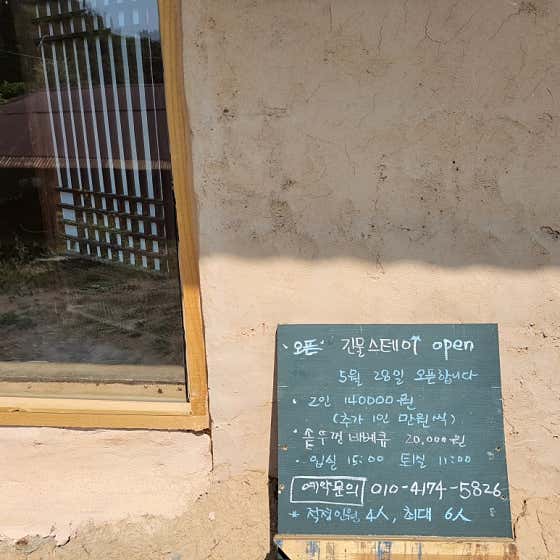 오픈 긴물스테이 open
5월 28일 오픈합니다
· 2인 140000원
(추가 1인 만원씩)
· 솥뚜껑 바베큐 20,000원
· 입실 15:00 퇴실 11:00
예약문의 010-4174-5826
* 적정인원 4人, 최대 6人